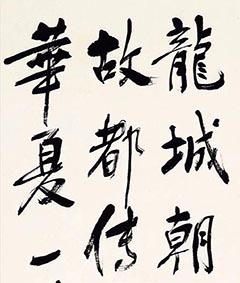 龍城朝
故都傳
華夏一